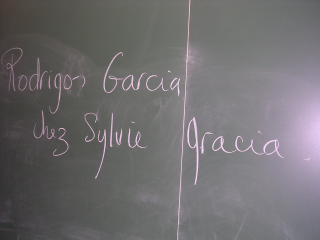 Rodrigo Garcia
chez Sylvie Gracia.